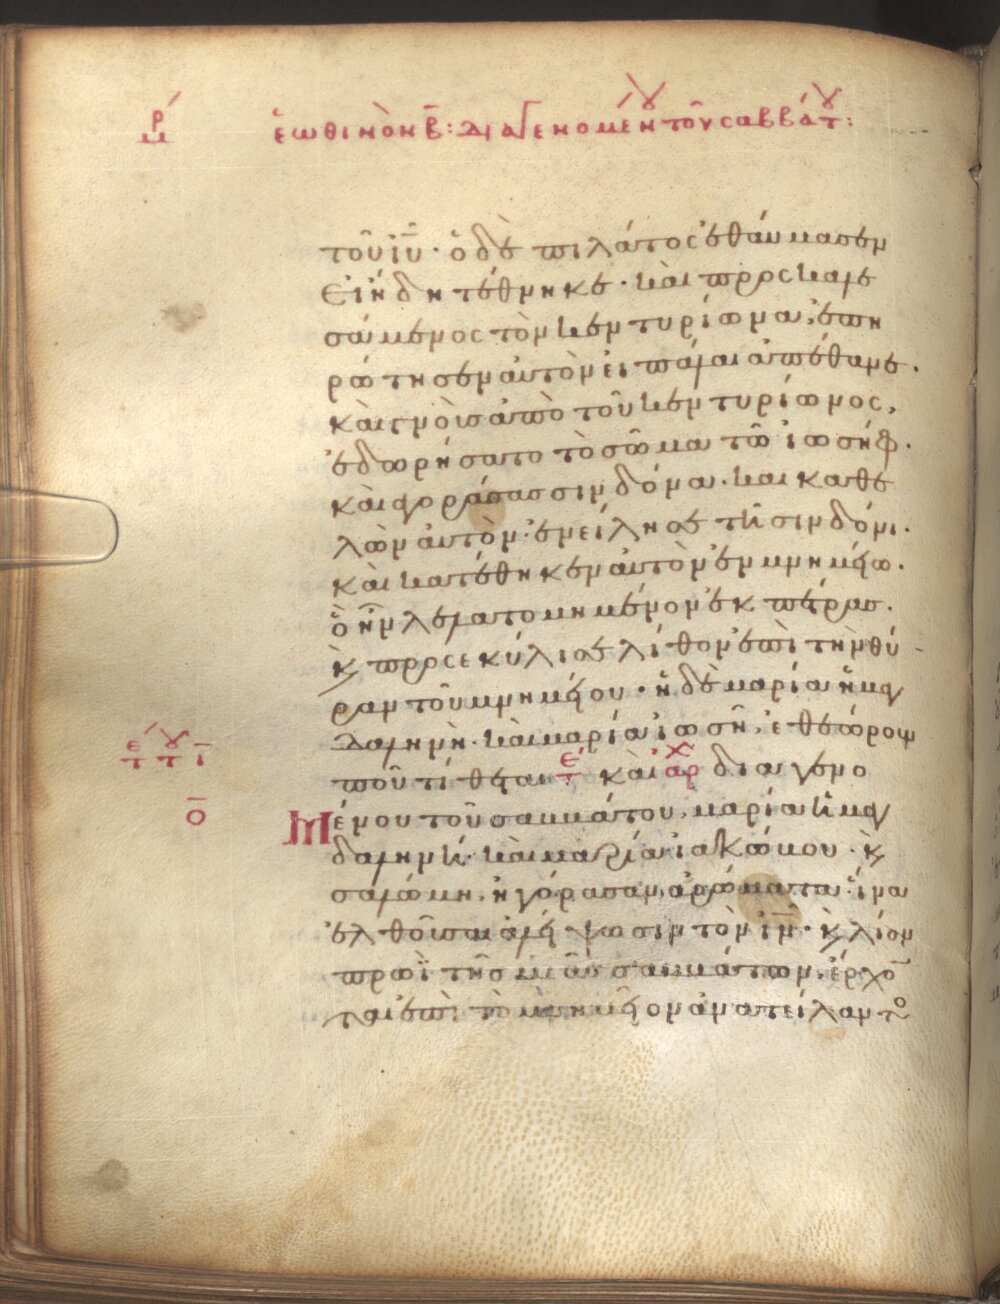 ρ
μ
ἑωθινὸν β̅: διαγενομένου τοῦ σαββάτου:
τοῦ ἰ̅υ̅· ὁ δὲ πιλάτος ἐθαύμασεν
εἰ ἤδη τέθνηκε· καὶ προσκαλε
σάμενος τὸν κεντυρίωνα, ἐπη
ρώτησεν αὐτὸν εἰ πάλαι ἀπέθανε·
καὶ γνοὺς ἀπὸ τοῦ κεντυρίωνος,
ἐδωρήσατο τὸ σῶμα τῶ ἰωσήφ·
καὶ ἀγοράσας σινδόνα· καὶ καθε
λὼν αὐτὸν· ἐνείλησε τῆ σινδόνι·
καὶ κατέθηκεν αὐτὸν ἐν μνημείω·
ὃ ἦν λελατομημένον ἐκ πέτρας·
ϗ προσεκύλισε λίθον ἐπὶ τὴν θύ
ραν τοῦ μνημείου· ἡ δὲ μαρία ἡ μαγ
δαληνὴ· καὶ μαρία ἰωσῆ, ἐθεώρουν
ποῦ τίθεται τε καὶ ἀρχ διαγενο
ετ του τι
ο̅
Μένου τοῦ σαββάτου, μαρία ἡ μαγ
δαληνὴ· καὶ μαρία ἰακώβου· ϗ
σαλώμη, ἠγόρασαν ἀρώματα· ἵνα
ἐλθοῦσαι ἀλείψωσιν τὸν ἰ̅ν̅· ϗ λίαν
πρωῒ τῆς μιᾶς σαββάτων, ἔρχον
ται ἐπὶ τὸ μνημεῖον ἀνατείλαντο